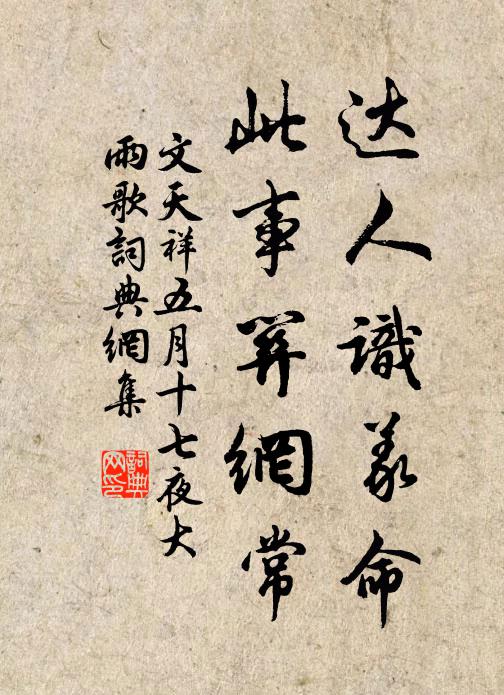 达人識義命
此事關綱常
文天祥五月十七夜大
雨歌詞典網集
詞典
网印